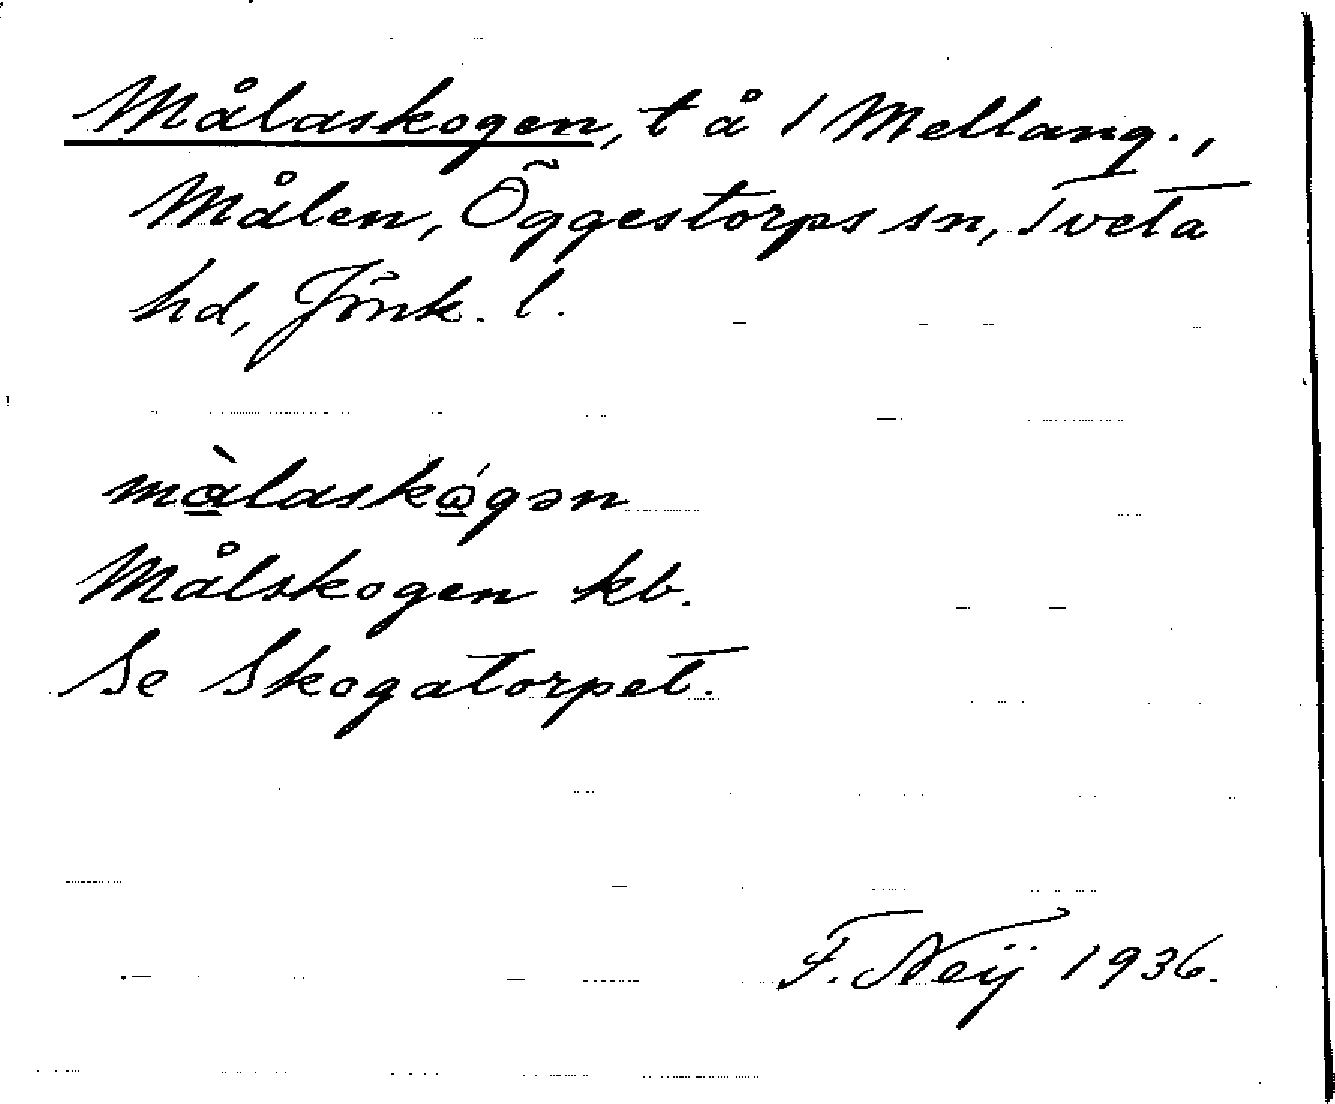 Målaskogen, t å 1 Mellang.,
Målen, Öggestorps sn, Tveta
hd, Jönk. l.
mà̲laskώ̲gən
Målskogen kb.
Se Skogatorpet.
F. Neij 1936.